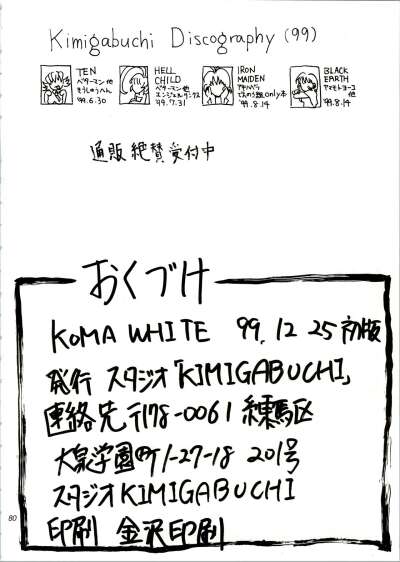 Kimigabuchi Discography (99)
TEN
ベターマン他
'99.6.30
HELL
CHILD
ベターマン他
エンジェルリンクス
'99.7.31
IRON
MAIDEN
only本
'99.8.14
BLACK
EARTH
ヤマモトヨーコ
他
'99.8.14
通販 絶賛受付中
おくづけ
KOMA WHITE 99.12.25 初版
発行 スタジオ「KIMIGABUCHI」
連絡先 〒178-0061 練馬区
大泉学園町1-27-18 201号
スタジオKIMIGABUCHI
印刷 金沢印刷
80